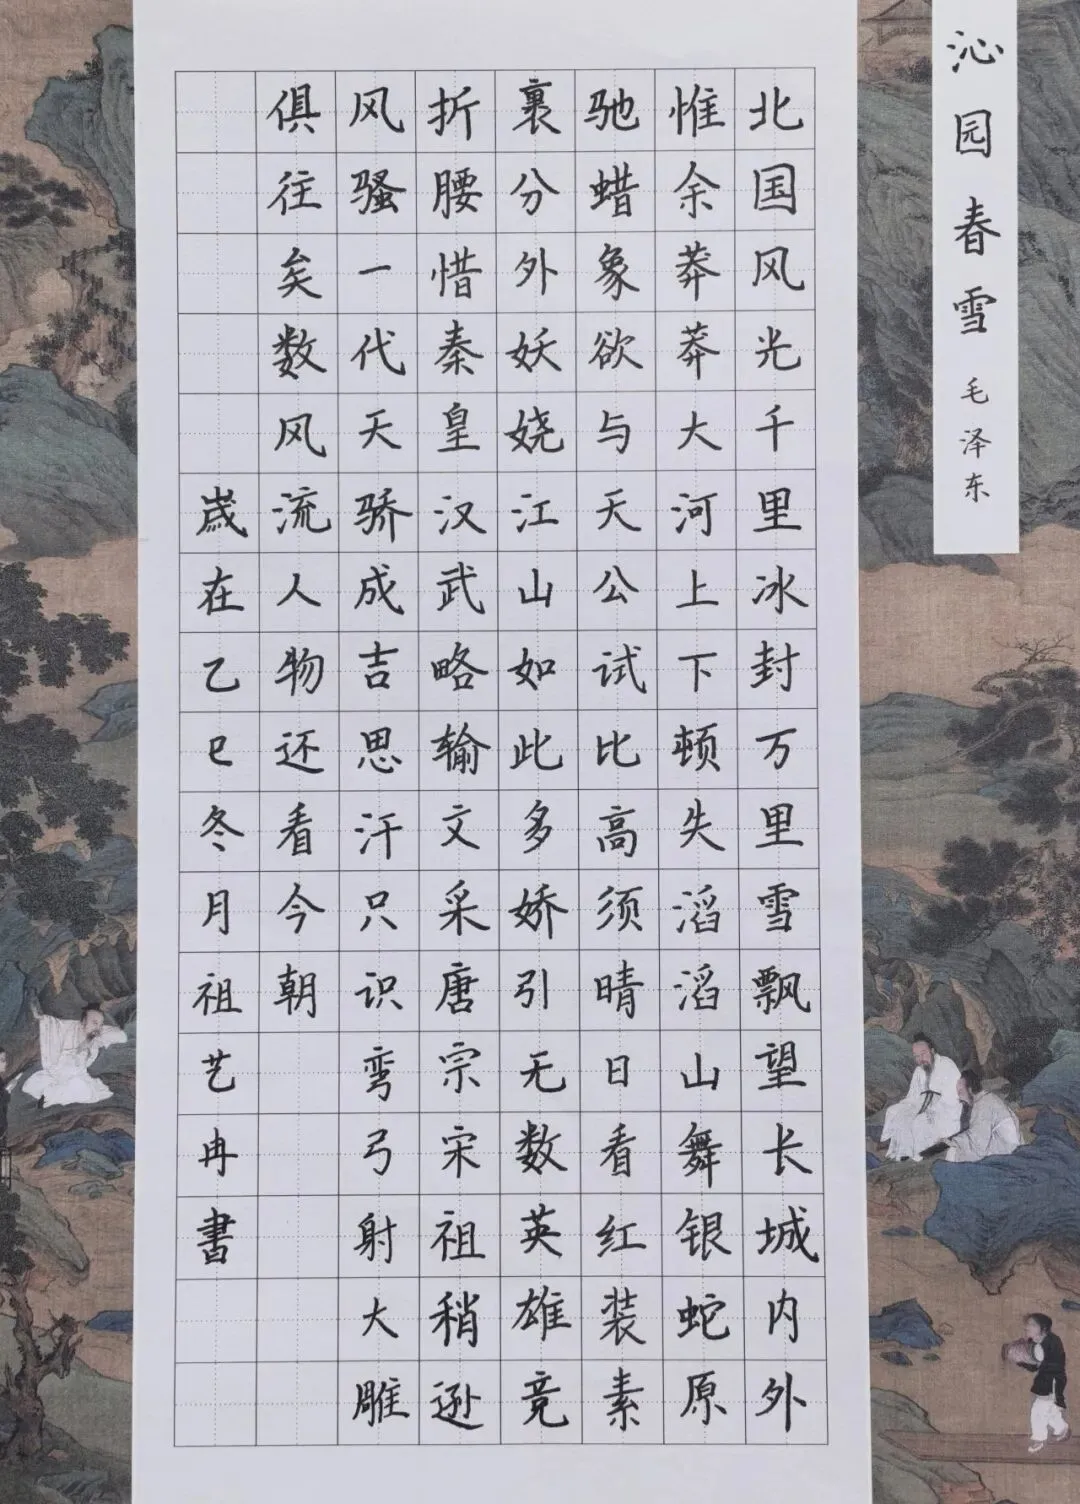 沁园春雪 毛泽东
北国风光千里冰封万里雪飘望长城内外
惟余莽莽大河上下顿失滔滔山舞银蛇原
驰蜡象欲与天公试比高须晴日看红装素
裹分外妖娆江山如此多娇引无数英雄竞
折腰惜秦皇汉武略输文采唐宗宋祖稍逊
风骚一代天骄成吉思汗只识弯弓射大雕
俱往矣数风流人物还看今朝
嵗在乙巳冬月祖艺冉書